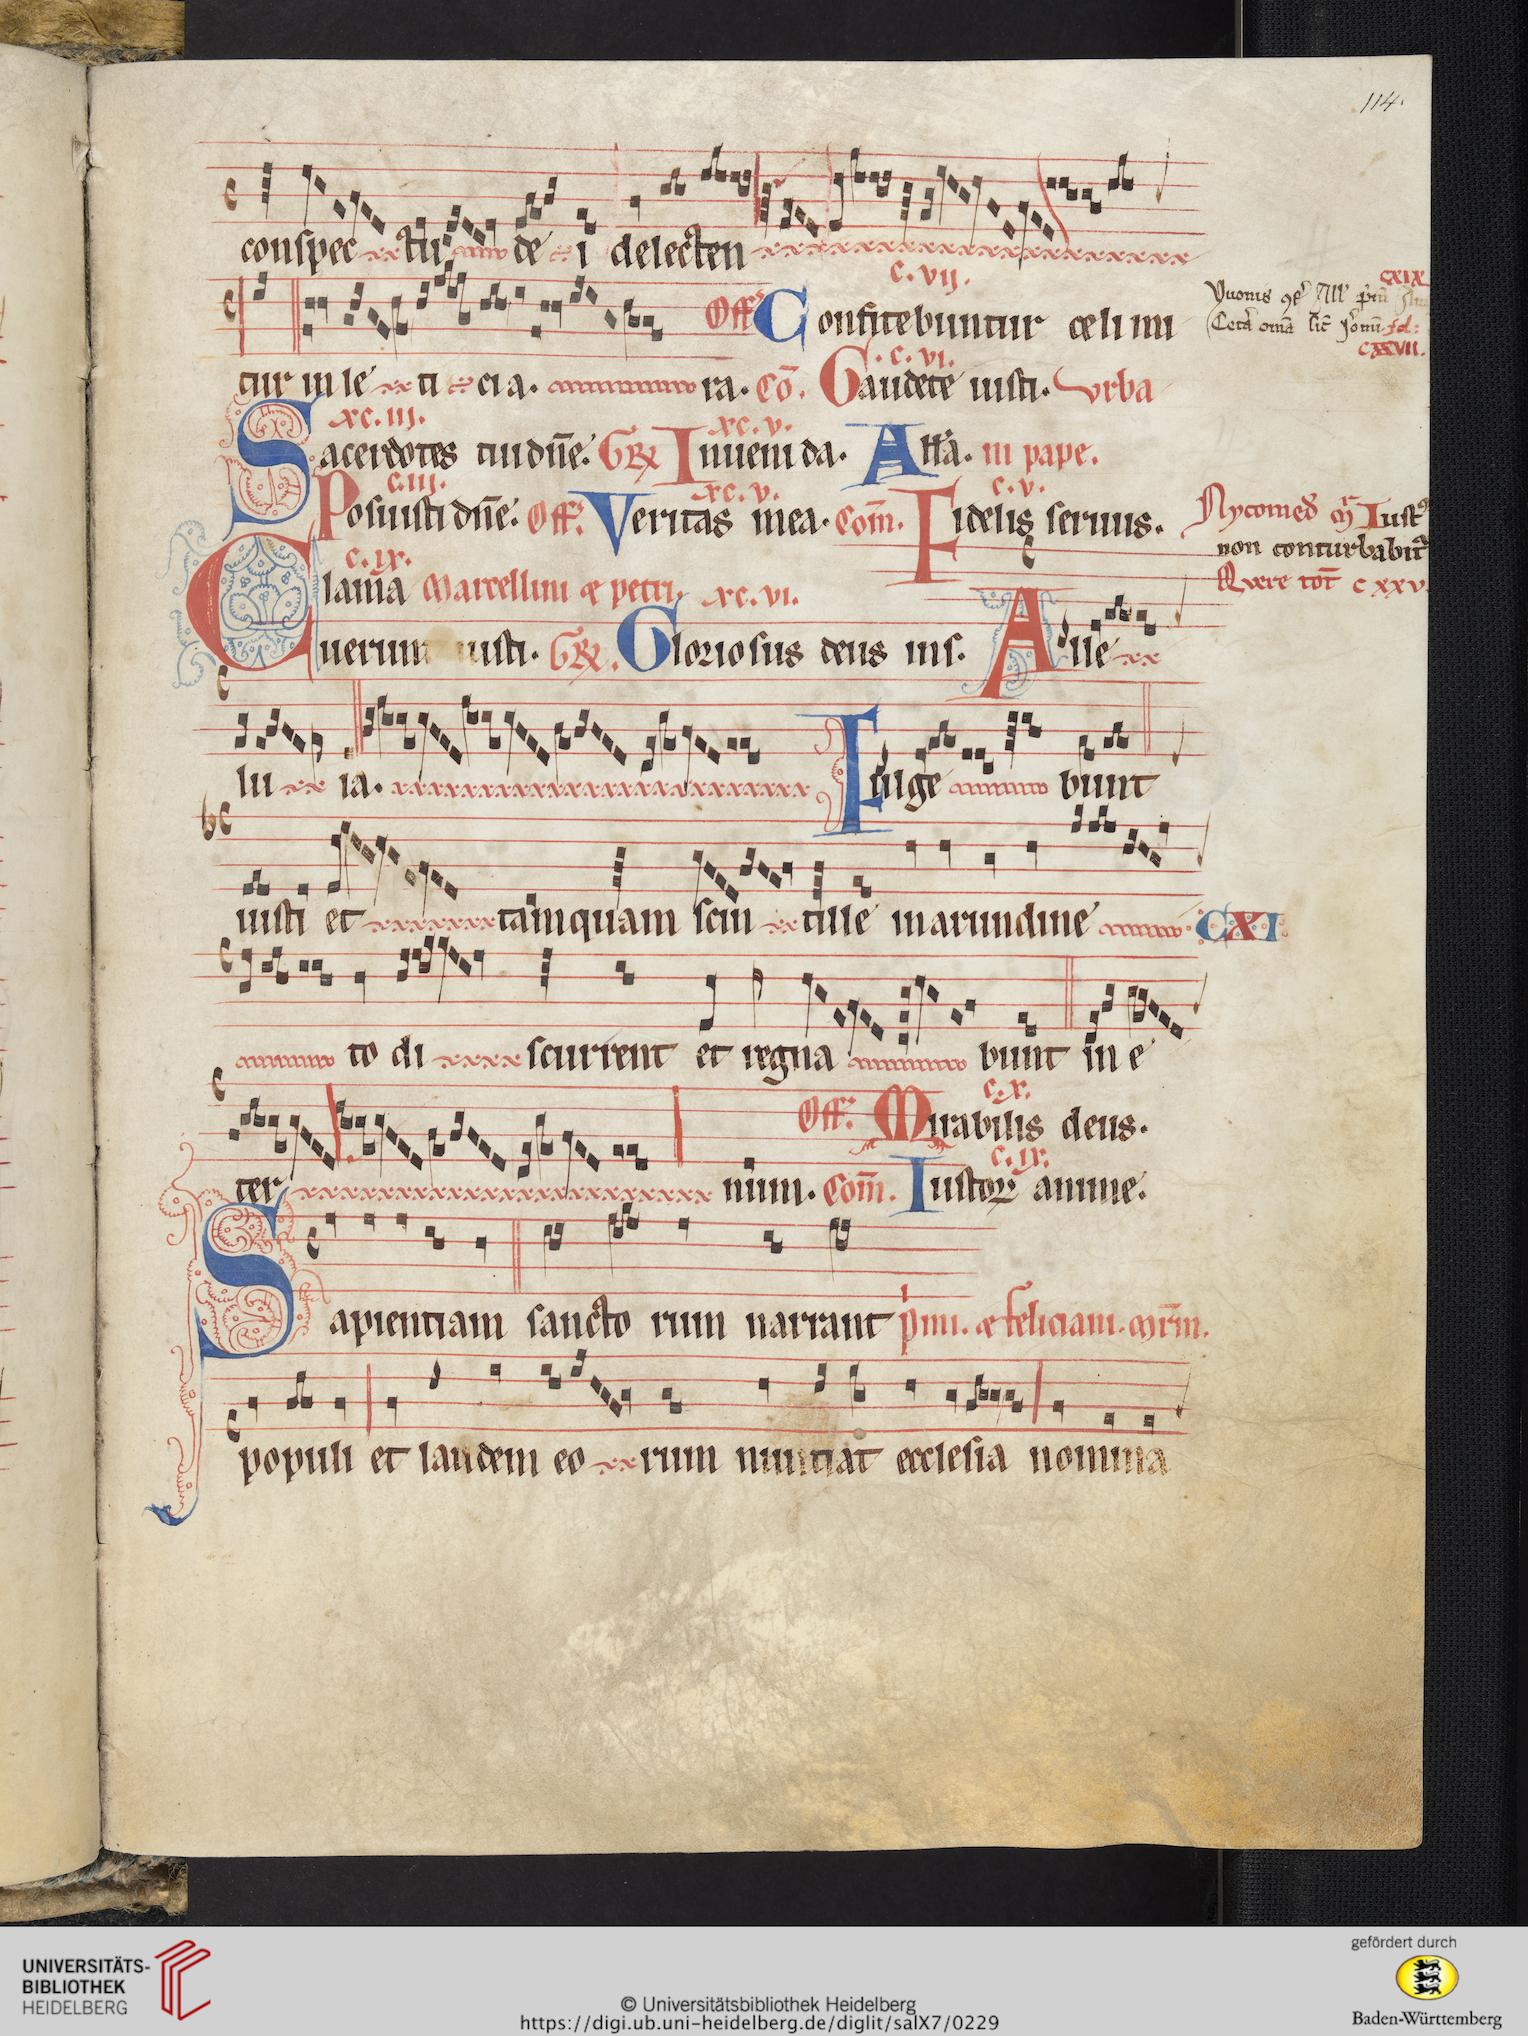 114.
conspec ctu de i delecten
c. vij.
Off. Confitebuntur celi mi
cxix
fol:
cxxvii.
c. vi.
tur in le ti cia. ra. Cō. Gaudete iusti. Urba
xc. iij. xc. v.
Sacerdotes tui dn̄e. GR Inueni da. All'a. ni pape.
c. iij. xc. v. c. v.
Posuisti dn̄e. Off. Veritas mea. Com̄. Fidelis seruus.
Nycomed m̄r Iust9
non conturbabit᷑
Quere tot̄ cxxv.
c. ix.
Clama Marcellini et petri. xc. vi.
uerunt iusti. GR. Gloriosus deus in s. Alle
lu ia. Fulge bunt
iusti et tamquam scin tille in arundine
CXI
to di scurrent et regna bunt in e
c. x.
Off. Mirabilis deus.
c. ix.
ter num. Com̄. Iustoꝝ anime.
Sapientiam sancto rum narrant p̄mi. et feliciani. mr̄m.
populi et laudem eo rum nuntiat ecclesia nomina
UNIVERSITÄTS-
BIBLIOTHEK
HEIDELBERG
© Universitätsbibliothek Heidelberg
https://digi.ub.uni-heidelberg.de/diglit/salX7/0229
gefördert durch
Baden-Württemberg